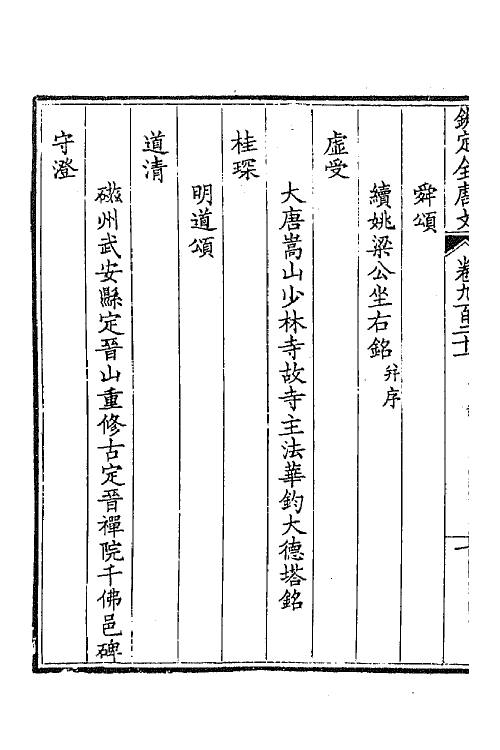 欽定全唐文
卷九百二十
一
舜頌
續姚梁公坐右銘并序
虛受
大唐嵩山少林寺故寺主法華鈞大德塔銘
桂琛
明道頌
道清
磁州武安縣定晉山重修古定晉禪院千佛邑碑
守澄